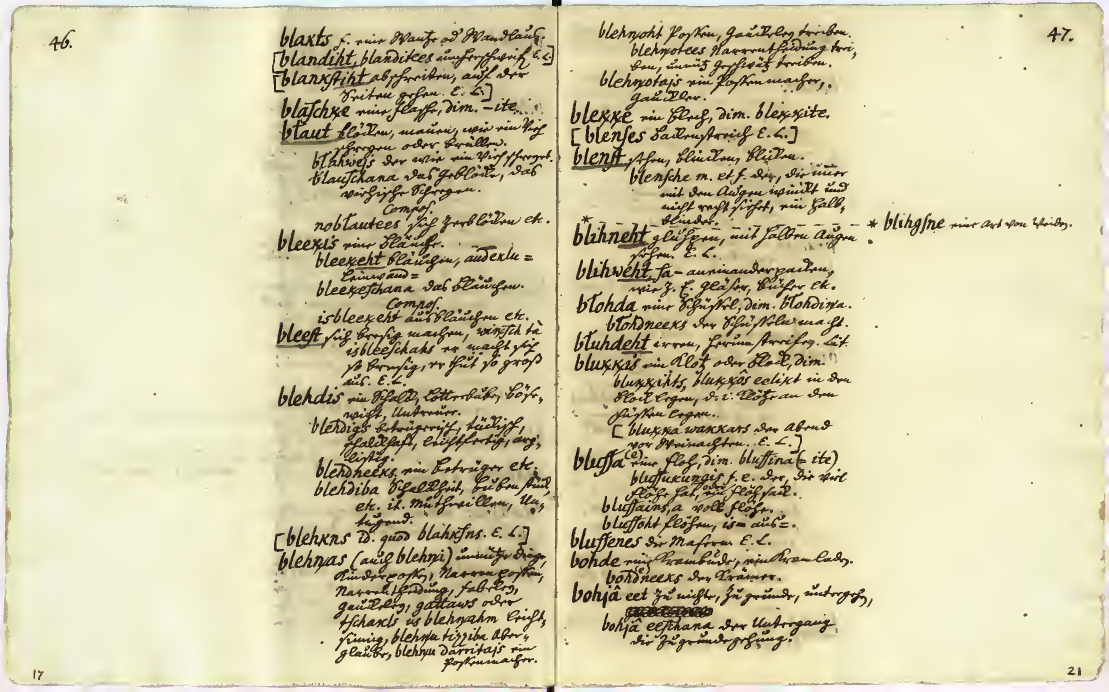 46.
blakts f. eine Wanze od Wandlaus.
[blandiht, blanditees umherschweif. E. L.]
[blankstiht abschreiten, auf der
Seiten gehen. E. L.]
blaschke eine Flasche, dim. - ite.
blaut blöken, mauen, wie ein Vieh
schreyen oder brüllen.
blahwejs der wie ein Vieh schreyet.
blauschana das Geblöke, das
viehische Schreyen.
Compos.
noblautees sich zerblöken etc.
bleekis eine Bläuche.
bleekeht bläuchen, audeklu =
Leinwand =
bleekeschana das Bläuchen.
Compos.
isbleekeht ausbläuchen etc.
bleest sich breisig machen, winsch tà
isbleeschahs er macht sich
so breisig, er thut so groß
aus. E. L.
blehdis ein Schalk, Lotterbube, Böse,
wigt, Untreuer.
blehdigs betrügerisch, tückisch,
schalkhaft, leichtfertig, arg,
listig.
blehdneeks ein Betrüger etc.
blehdiba Schalkheit, Bubenstück,
etc. it. Muthwillen, Un,
tugend.
[blehkns Id. quod blahksns. E. L.]
blehnas (auch blehni) unnütze Dinge,
Kinderpossen, Narrenpossen,
Narrentheidung, Fabeley,
Gaukeley, gattaws oder
tschakls us blehnahm leicht,
sinnig, blehnu tizziba Aber,
glaube, blehnu darritajs ein
Possenmacher.
17
47.
blehnoht Possen, Gaukeley treiben.
blehnotees Narrentheidung trei,
ben, unnütz Geschwätz treiben.
blehnotajs ein Possenmacher,
Gaukler.
blekke ein Blech, dim. blekkite.
[blenses Backenstreich E. L.]
blenst sehen, blinken, blicken.
blensche m. et f. der, die immer
mit den Augen winkt und
nicht recht siehet, ein halb,
blinder.
* blihgsne eine Art von Weiden.
*
blihneht gluhpen, mit halben Augen
sehen. E. L.
blihweht sa- aneinander packen,
wie z. E. Gläser, Bücher etc.
blohda eine Schüssel, dim. blohdina.
blohdneeks der Schüsseln macht.
bluhdeht irren, herum streifen. Lit.
blukkis ein Klotz oder Block, dim.
blukkihts, blukkôs eelikt in den
Block legen, d. i. Klötze an den
Füssen legen.
[blukka wakkars der Abend
vor Weinachten. E. L.]
blussa (e) eine Floh, dim. blussina (- ite)
blussukungis f. e. der, die viel
Flöhe hat, oder ein Flöhsack.
blussains, a voll Flöhe.
blussoht flöhen, is = aus =.
blussenes die Masern. E. L.
bohde eine Krambude, ein Kramladen.
bohdneeks der Krämer.
bohjâ eet zu nichte, zu grunde, untergehen,
bohjâ eeschana der Untergang
die zugrundegehung.
21